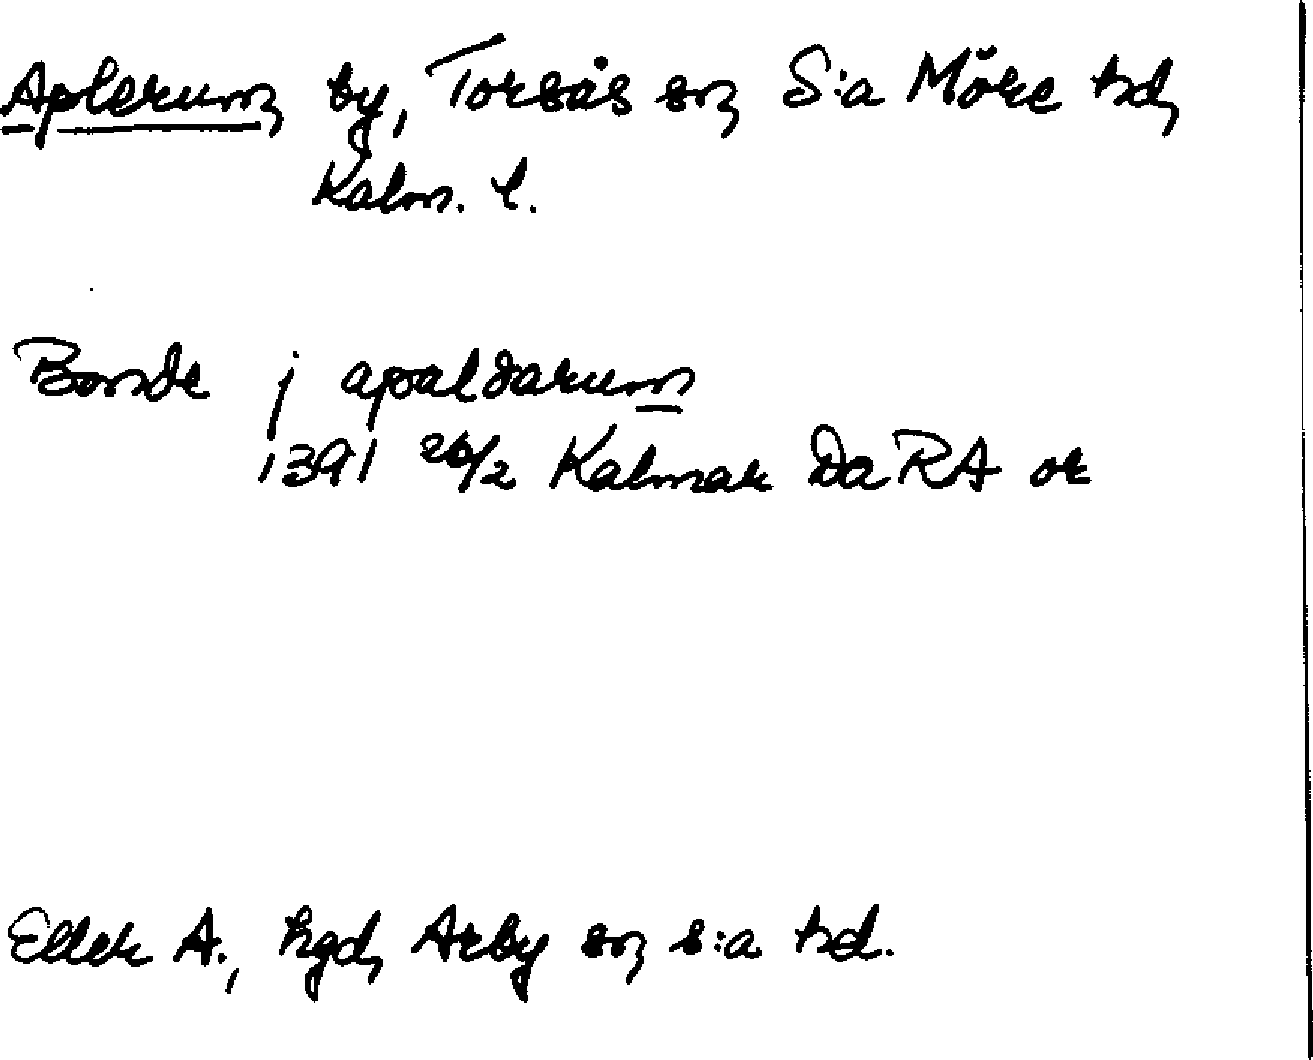 Aplerum, by, Torsås sn, S:a Möre hd,
Kalm. l.
Bonde j apaldarum
1391 26/2 Kalmar Da RA or
Eller A., hgd, Arby sn, s:a hd.